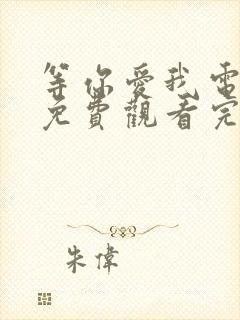 等你愛我電
免費觀看完
朱偉